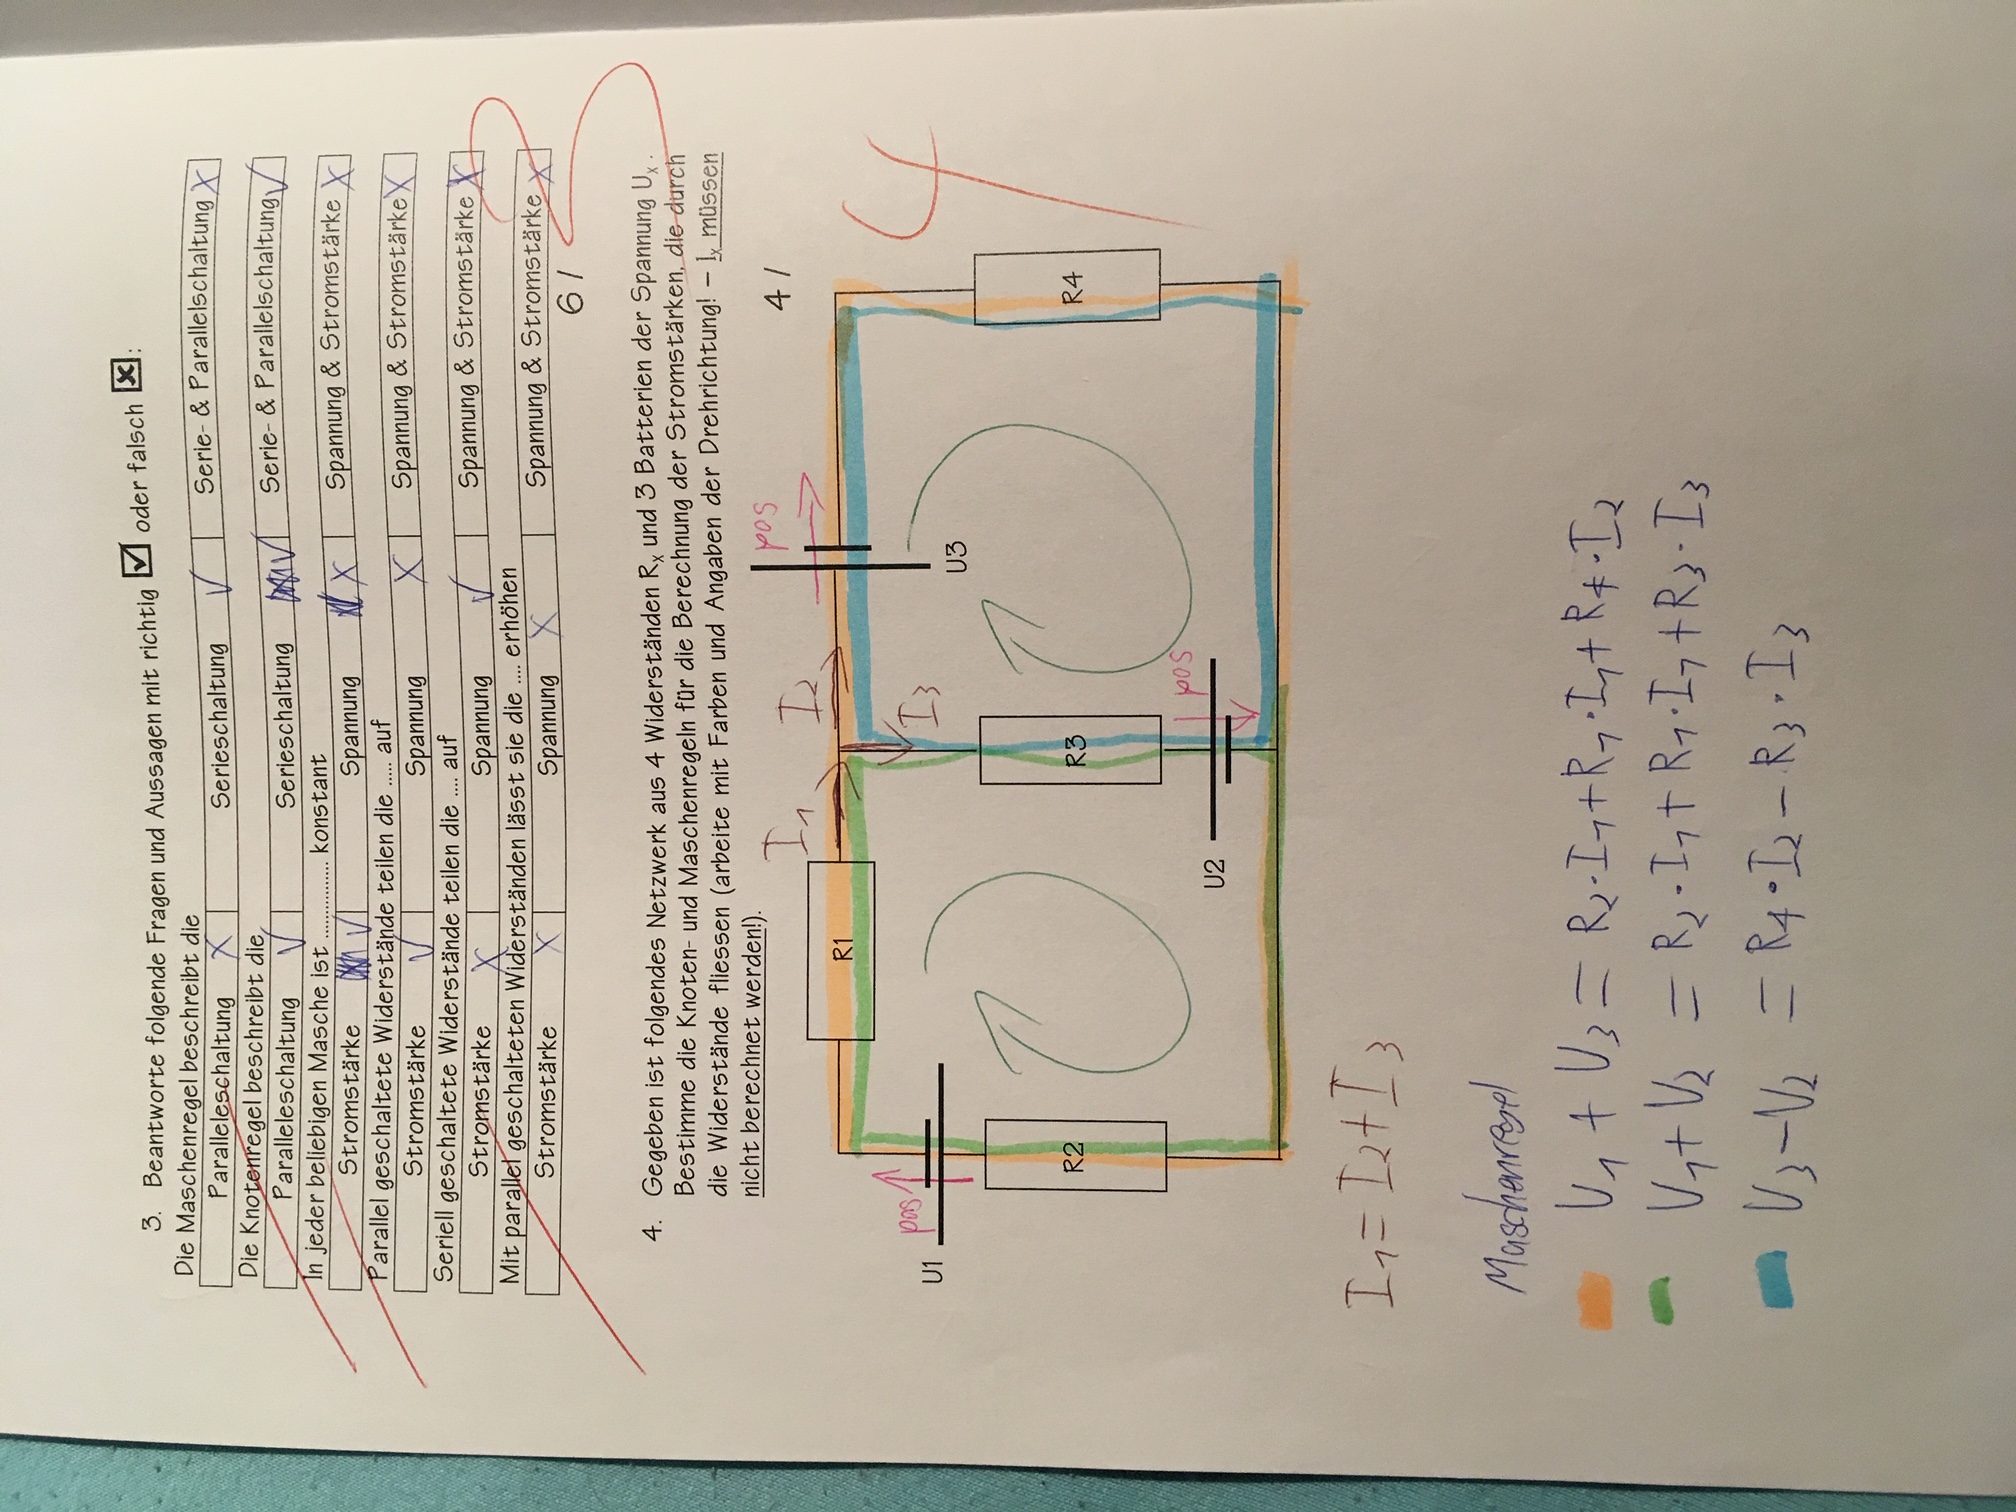 3. Beantworte folgende Fragen und Aussagen mit richtig ☑ oder falsch ☒:
Die Maschenregel beschreibt die
Paralleleschaltung X Serieschaltung ✓ Serie- & Parallelschaltung X
Die Knotenregel beschreibt die
Paralleleschaltung ✓ Serieschaltung ✓ Serie- & Parallelschaltung ✓
In jeder beliebigen Masche ist ............... konstant
Stromstärke ✓ Spannung X Spannung & Stromstärke X
Parallel geschaltete Widerstände teilen die ..... auf
Stromstärke ✓ Spannung X Spannung & Stromstärke X
Seriell geschaltete Widerstände teilen die .... auf
Stromstärke X Spannung ✓ Spannung & Stromstärke X
Mit parallel geschalteten Widerständen lässt sie die .... erhöhen
Stromstärke X Spannung X Spannung & Stromstärke X
6 /
3
4. Gegeben ist folgendes Netzwerk aus 4 Widerständen Rx und 3 Batterien der Spannung Ux.
Bestimme die Knoten- und Maschenregeln für die Berechnung der Stromstärken, die durch
die Widerstände fliessen (arbeite mit Farben und Angaben der Drehrichtung! – Ix müssen
nicht berechnet werden!).
4 /
4
I1 I2 pos
R1
pos
U1
I3
U3
R2 R3 R4
pos
U2
I1 = I2 + I3
Maschenregel
U1 + U3 = R2 · I1 + R1 · I1 + R4 · I2
U1 + U2 = R2 · I1 + R1 · I1 + R3 · I3
U3 – U2 = R4 · I2 – R3 · I3